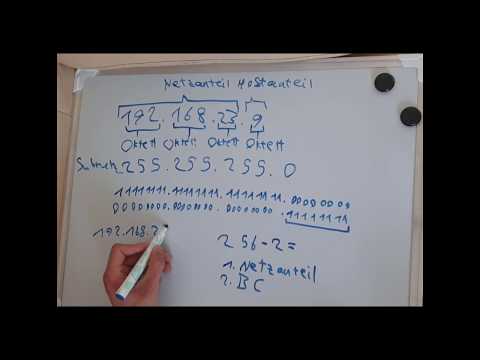 Netzanteil Hostanteil
192.168.23.9
Oktett Oktett Oktett Oktett
255.255.255.0
11111111.11111111.11111111.00000000
00000000.00000000.00000000.11111111
192.168.2
256-2=
1. Netzanteil
2. BC